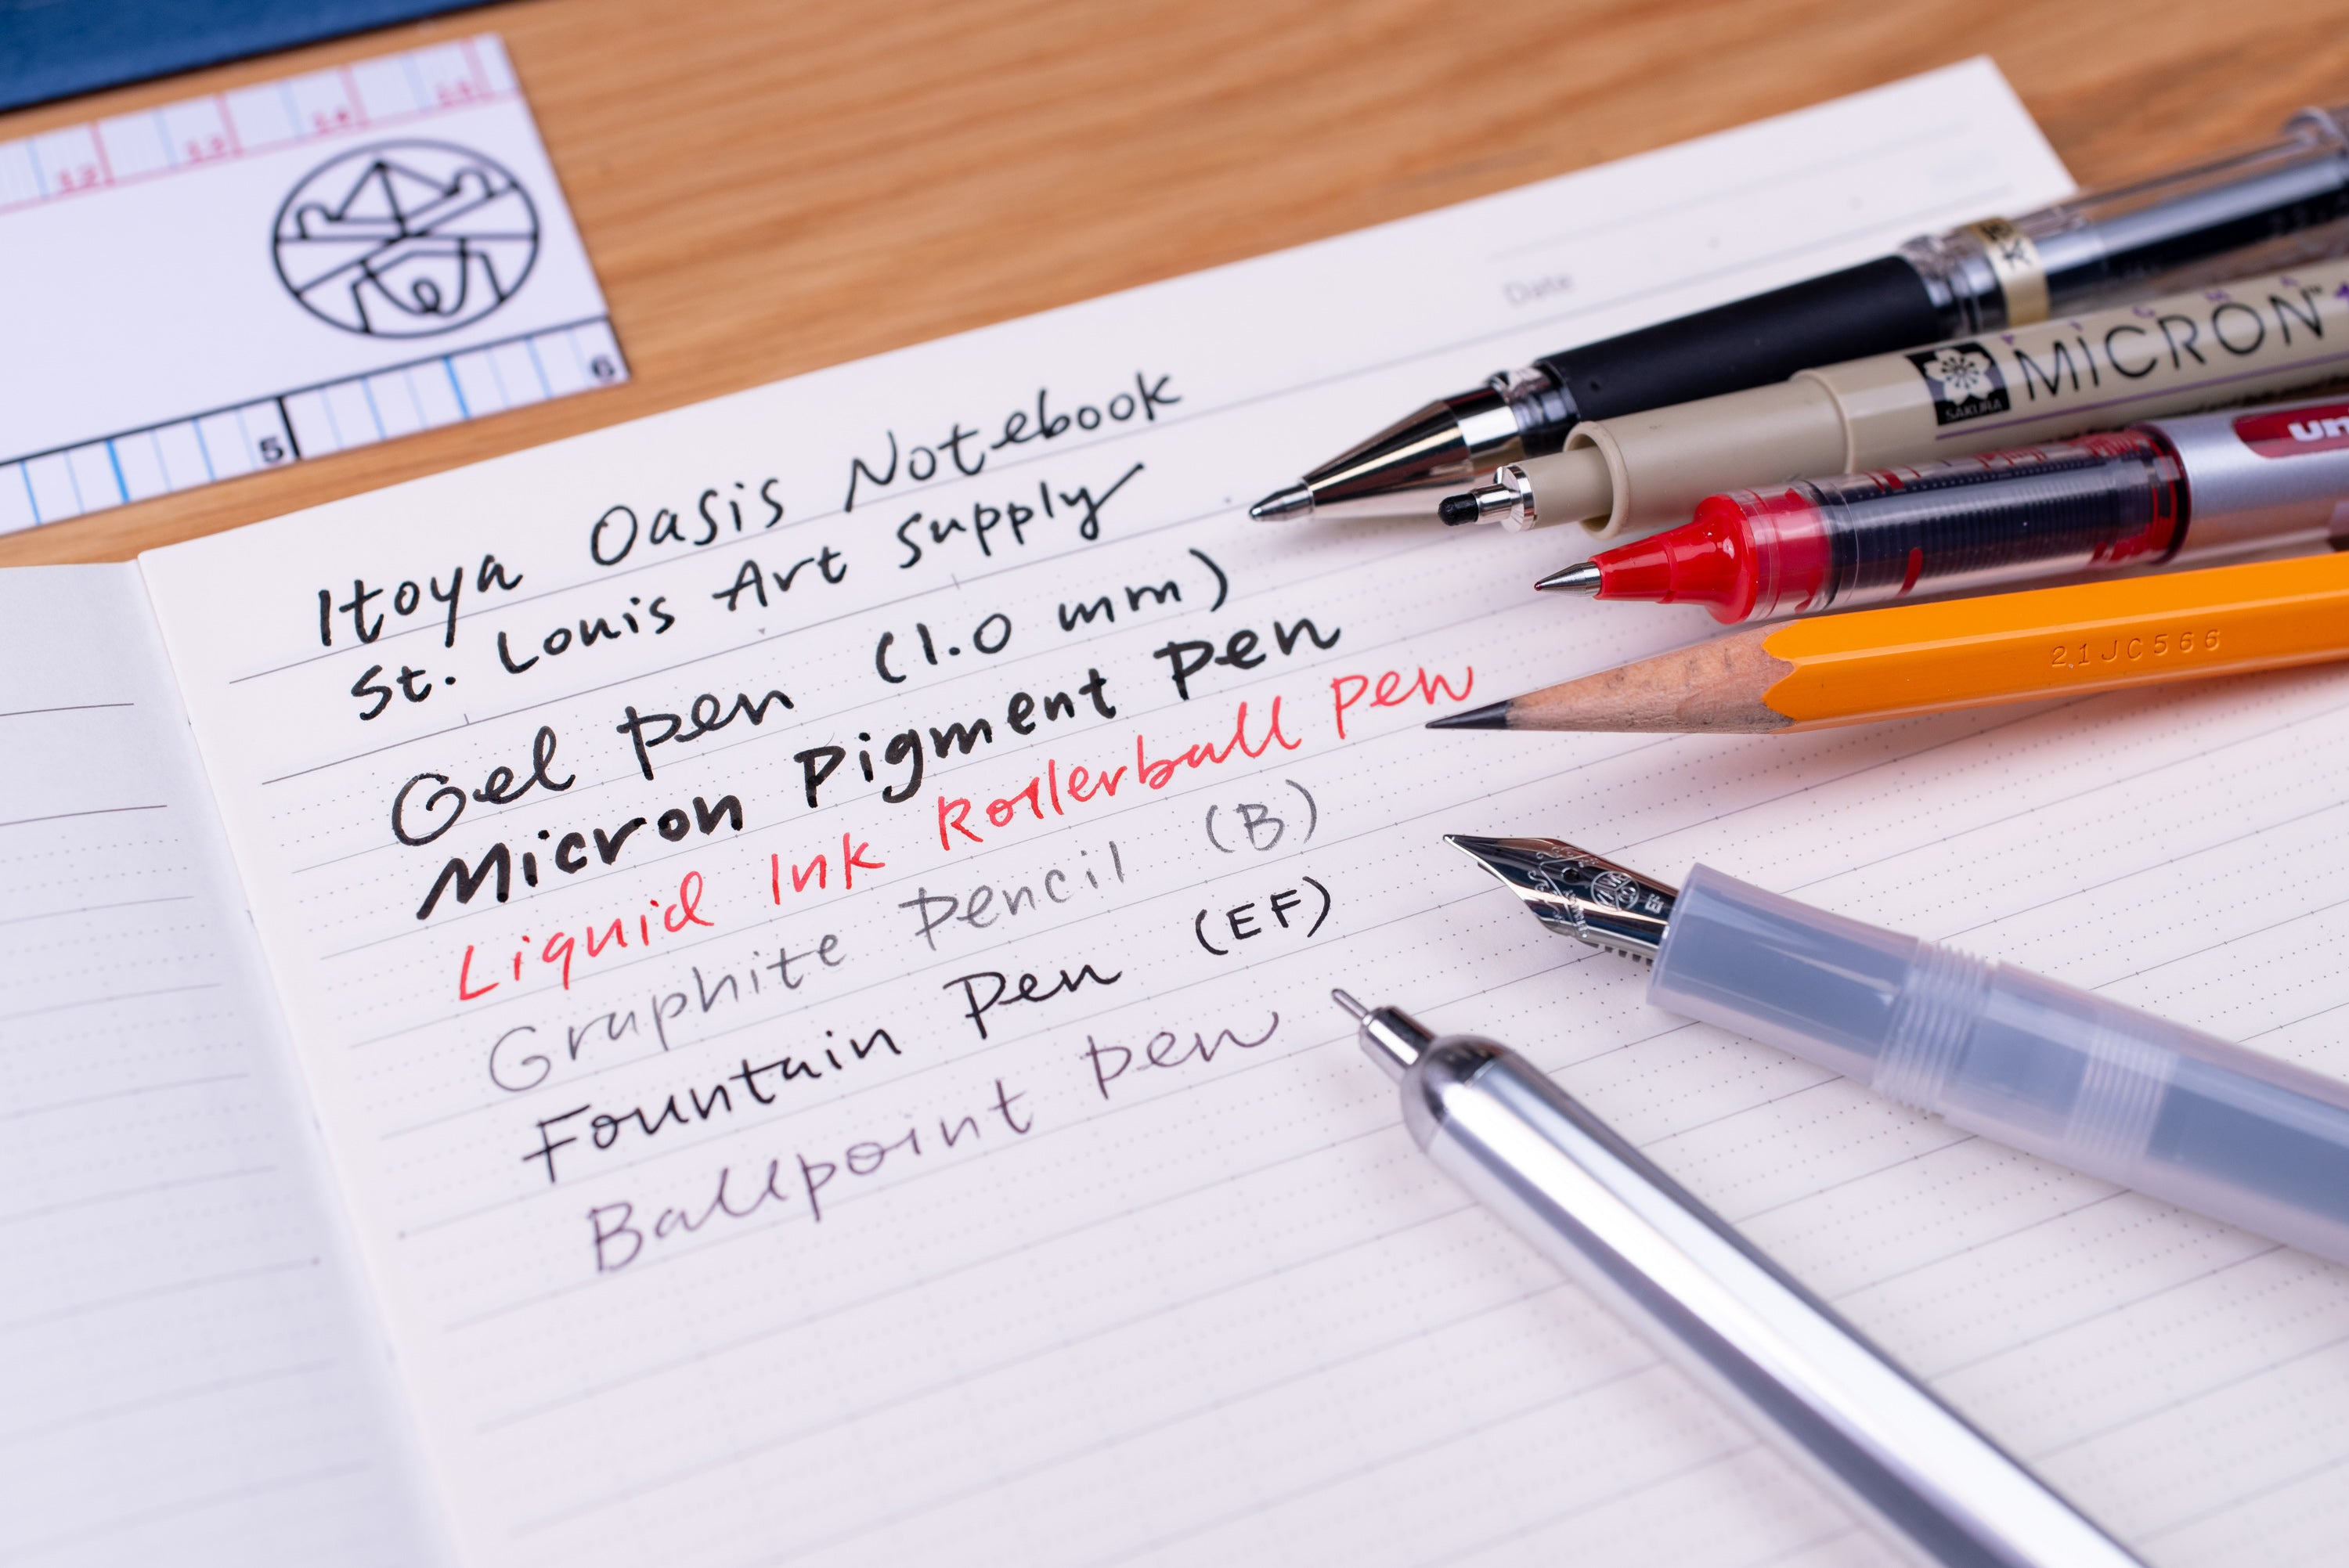 5
6
Date
Itoya Oasis Notebook
St. Louis Art Supply
Gel pen (1.0 mm)
Micron Pigment Pen
Liquid Ink Rollerball pen
Graphite Pencil (B)
Fountain Pen (EF)
Ballpoint pen
SAKURA
MICRON™
uni
21JC566
EF